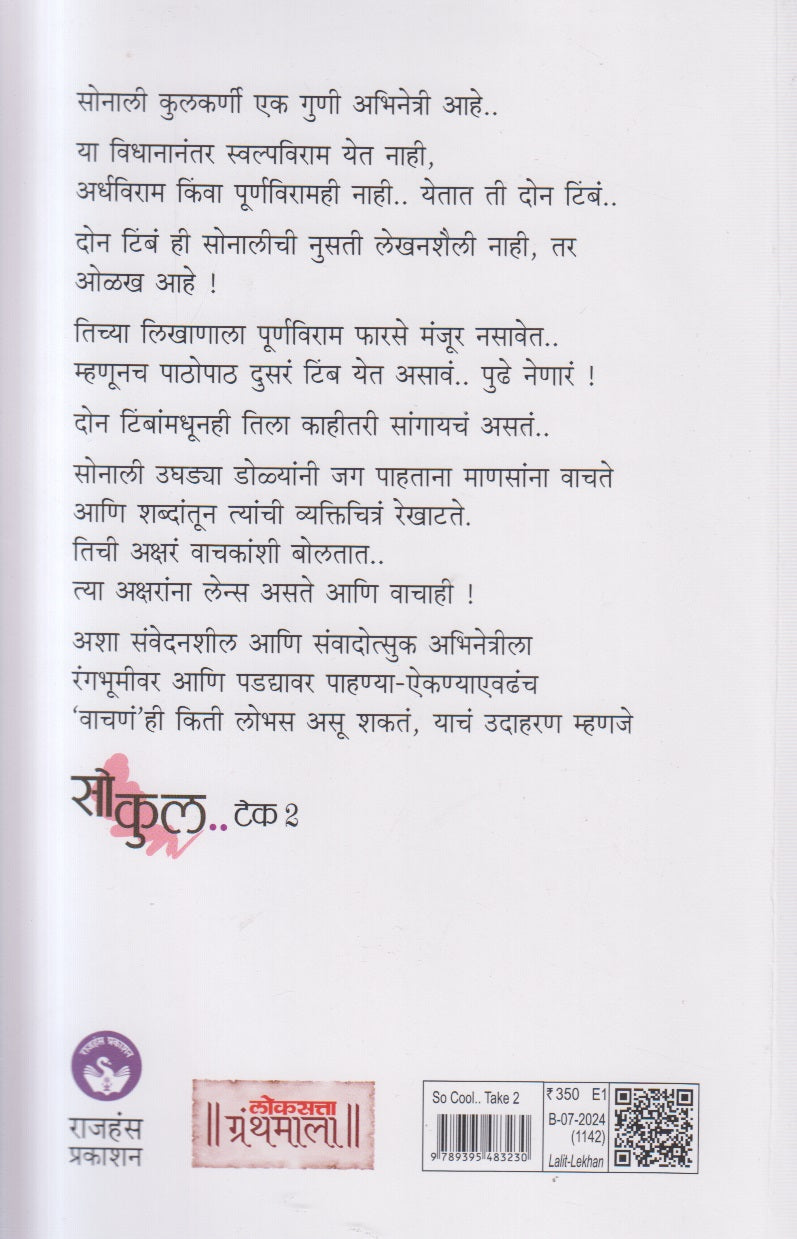 सोनाली कुलकर्णी एक गुणी अभिनेत्री आहे..
या विधानानंतर स्वल्पविराम येत नाही,
अर्धविराम किंवा पूर्णविरामही नाही.. येतात ती दोन टिंबं..
दोन टिंबं ही सोनालीची नुसती लेखनशैली नाही, तर
ओळख आहे !
तिच्या लिखाणाला पूर्णविराम फारसे मंजूर नसावेत..
म्हणूनच पाठोपाठ दुसरं टिंब येत असावं.. पुढे नेणारं !
दोन टिंबांमधूनही तिला काहीतरी सांगायचं असतं..
सोनाली उघड्या डोळ्यांनी जग पाहताना माणसांना वाचते
आणि शब्दांतून त्यांची व्यक्तिचित्रं रेखाटते.
तिची अक्षरं वाचकांशी बोलतात..
त्या अक्षरांना लेन्स असते आणि वाचाही !
अशा संवेदनशील आणि संवादोत्सुक अभिनेत्रीला
रंगभूमीवर आणि पडद्यावर पाहण्या-ऐकण्याएवढंच
‘वाचणं’ही किती लोभस असू शकतं, याचं उदाहरण म्हणजे
सो कुल.. टेक 2
राजहंस प्रकाशन
राजहंस
प्रकाशन
लोकसत्ता
॥ ग्रंथमाला ॥
So Cool.. Take 2
9 789395 483230
₹350 E1
B-07-2024
(1142)
Lalit-Lekhan